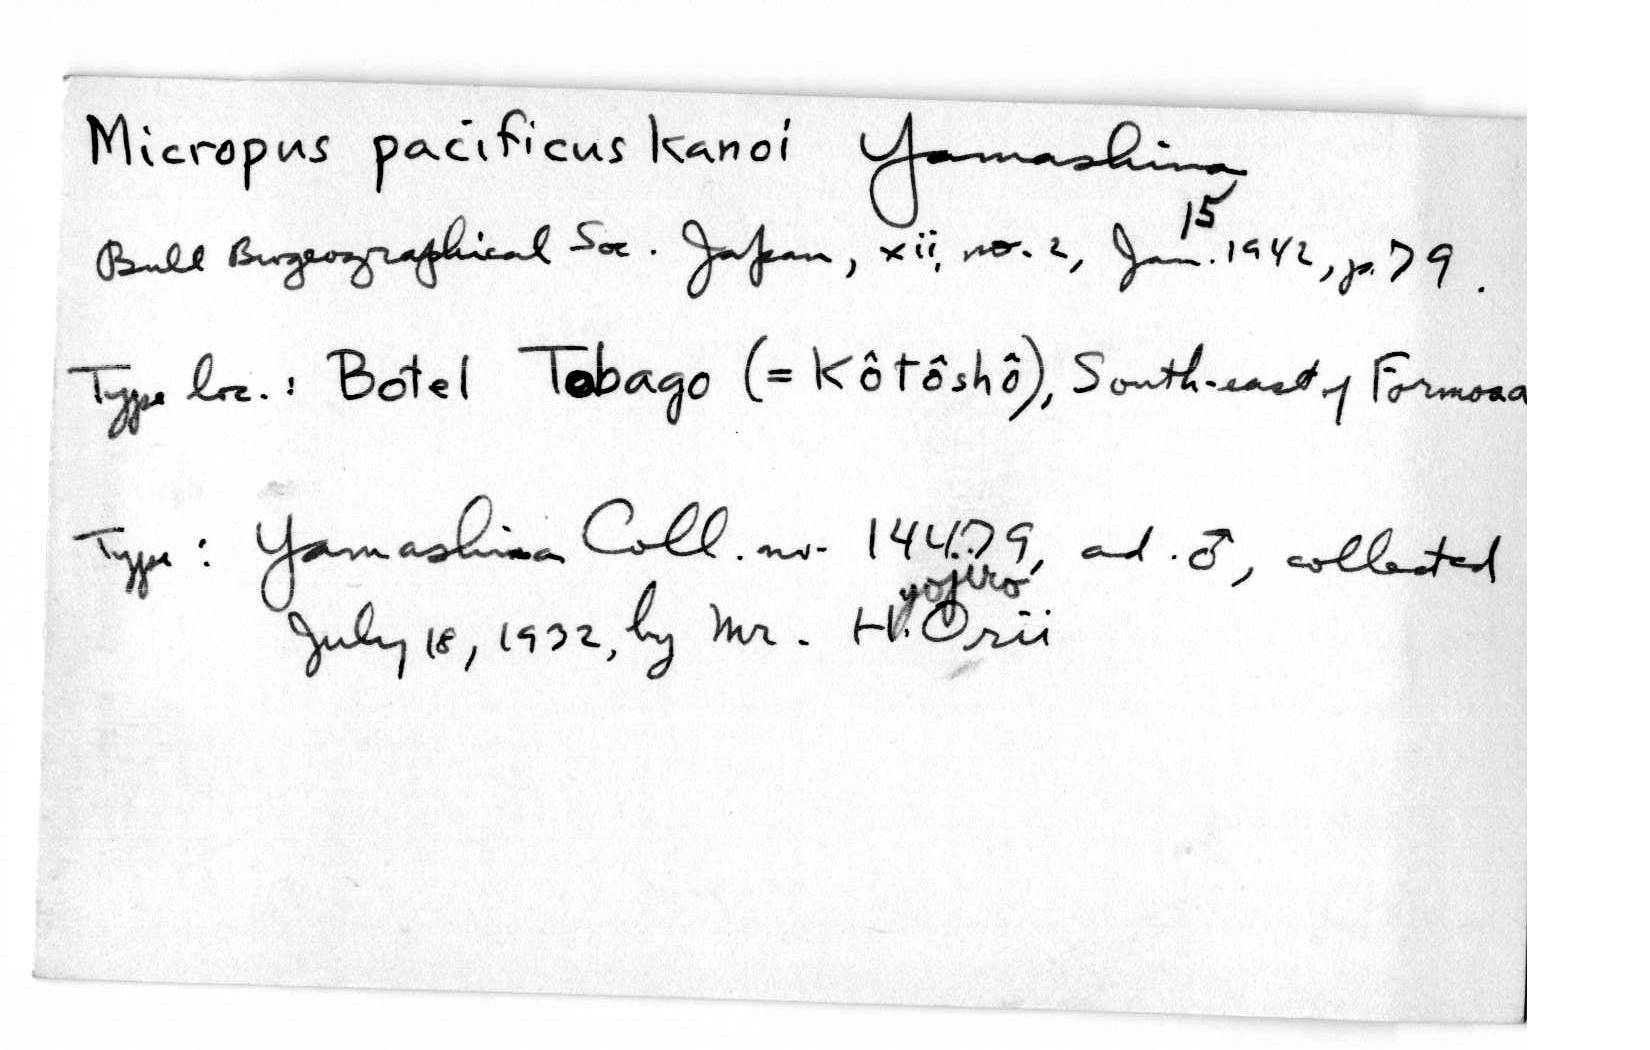 Micropus pacificus kanoi Yamashina
15
Bull Biogeographical Soc. Japan, xii, no. 2, Jan. 1942, p. 79.
Type loc. : Botel Tobago (= Kôtôshô), South-east of Formosa
Type : Yamashina Coll. no. 14479, ad. ♂, collected
yojiro
July 18, 1932, by Mr. H. Orii